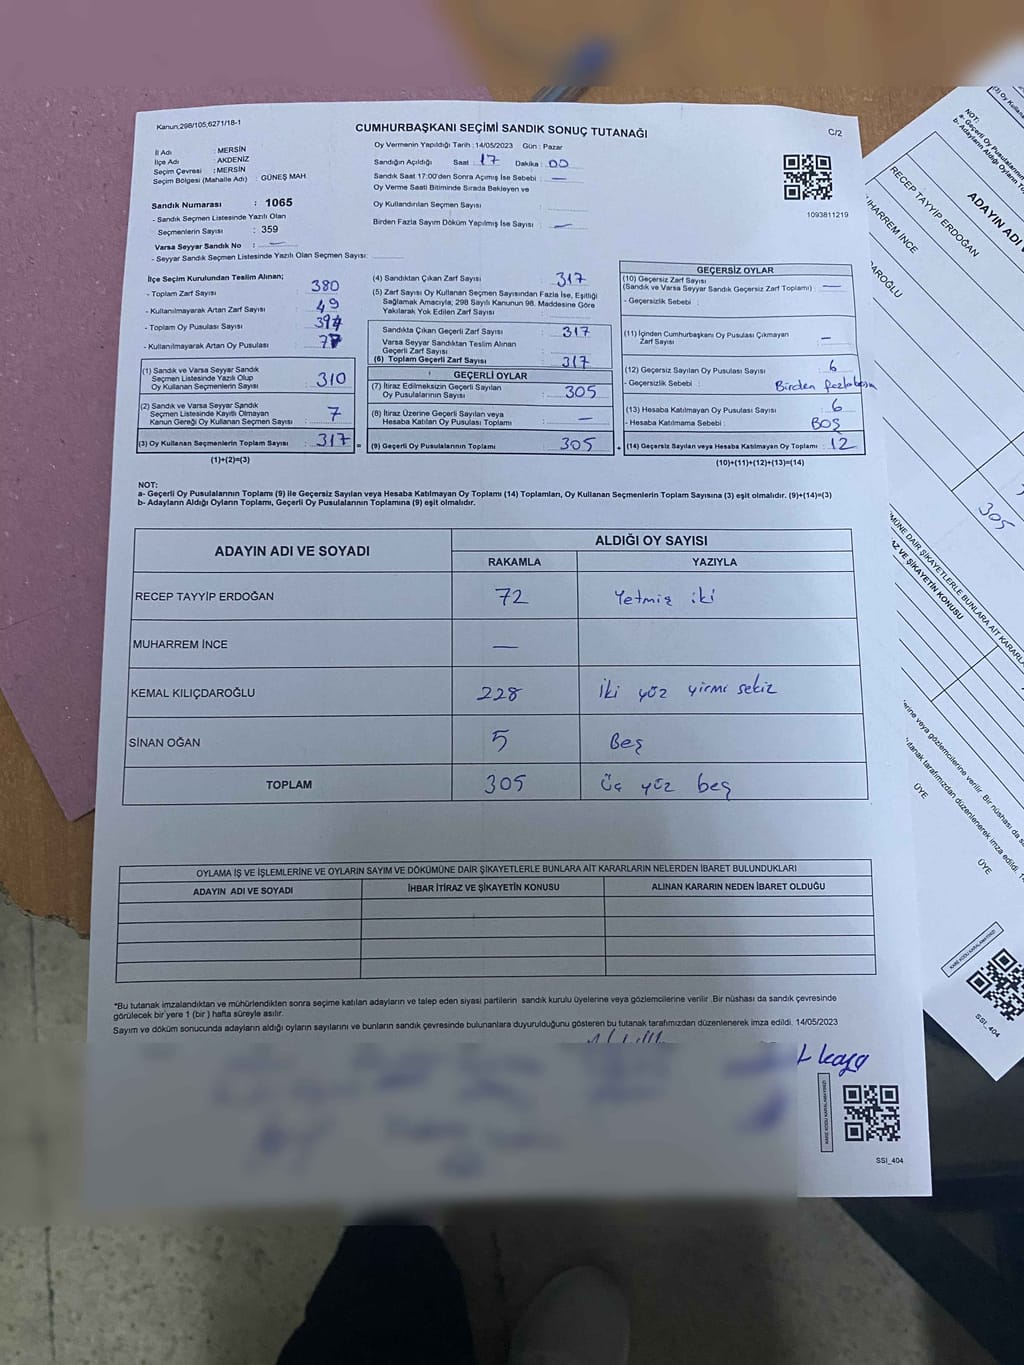 Kanun,298/105;6271/18-1
CUMHURBAŞKANI SEÇİMİ SANDIK SONUÇ TUTANAĞI
C/2
İl Adı : MERSİN
İlçe Adı : AKDENİZ
Seçim Çevresi : MERSİN
Seçim Bölgesi (Mahalle Adı) : GÜNEŞ MAH.
Sandık Numarası : 1065
- Sandık Seçmen Listesinde Yazılı Olan
Seçmenlerin Sayısı : 359
Varsa Seyyar Sandık No : —
- Seyyar Sandık Seçmen Listesinde Yazılı Olan Seçmen Sayısı:
Oy Vermenin Yapıldığı Tarih : 14/05/2023 Gün : Pazar
Sandığın Açıldığı Saat : 17 Dakika : 00
Sandık Saat 17:00'den Sonra Açımış İse Sebebi : —
Oy Verme Saati Bitiminde Sırada Bekleyen ve
Oy Kullandırılan Seçmen Sayısı :
Birden Fazla Sayım Döküm Yapılmış İse Sayısı : —
1093811219
İlçe Seçim Kurulundan Teslim Alınan;
- Toplam Zarf Sayısı : 380
- Kullanılmayarak Artan Zarf Sayısı : 49
- Toplam Oy Pusulası Sayısı :
- Kullanılmayarak Artan Oy Pusulası :
(1) Sandık ve Varsa Seyyar Sandık
Seçmen Listesinde Yazılı Olup
Oy Kullanan Seçmenlerin Sayısı : 310
(2) Sandık ve Varsa Seyyar Sandık
Seçmen Listesinde Kayıtlı Olmayan
Kanun Gereği Oy Kullanan Seçmen Sayısı : 7
(3) Oy Kullanan Seçmenlerin Toplam Sayısı : 317
(1)+(2)=(3)
(4) Sandıktan Çıkan Zarf Sayısı : 317
(5) Zarf Sayısı Oy Kullanan Seçmen Sayısından Fazla İse, Eşitliği
Sağlamak Amacıyla, 298 Sayılı Kanunun 98. Maddesine Göre
Yakılarak Yok Edilen Zarf Sayısı :
Sandıkta Çıkan Geçerli Zarf Sayısı : 317
Varsa Seyyar Sandıktan Teslim Alınan
Geçerli Zarf Sayısı :
(6) Toplam Geçerli Zarf Sayısı : 317
GEÇERLİ OYLAR
(7) İtiraz Edilmeksizin Geçerli Sayılan
Oy Pusulalarının Sayısı : 305
(8) İtiraz Üzerine Geçerli Sayılan veya
Hesaba Katılan Oy Pusulası Toplamı : —
= (9) Geçerli Oy Pusulalarının Toplamı : 305
GEÇERSİZ OYLAR
(10) Geçersiz Zarf Sayısı
(Sandık ve Varsa Seyyar Sandık Geçersiz Zarf Toplamı) : —
- Geçersizlik Sebebi :
(11) İçinden Cumhurbaşkanı Oy Pusulası Çıkmayan
Zarf Sayısı : —
(12) Geçersiz Sayılan Oy Pusulası Sayısı : 6
- Geçersizlik Sebebi : Birden fazla
(13) Hesaba Katılmayan Oy Pusulası Sayısı : 6
- Hesaba Katılmama Sebebi : BOŞ
+ (14) Geçersiz Sayılan veya Hesaba Katılmayan Oy Toplamı : 12
(10)+(11)+(12)+(13)=(14)
NOT:
a- Geçerli Oy Pusulalarının Toplamı (9) ile Geçersiz Sayılan veya Hesaba Katılmayan Oy Toplamı (14) Toplamları, Oy Kullanan Seçmenlerin Toplam Sayısına (3) eşit olmalıdır. (9)+(14)=(3)
b- Adayların Aldığı Oyların Toplamı, Geçerli Oy Pusulalarının Toplamına (9) eşit olmalıdır.
ADAYIN ADI VE SOYADI
ALDIĞI OY SAYISI
RAKAMLA YAZIYLA
RECEP TAYYİP ERDOĞAN 72 Yetmiş iki
MUHARREM İNCE —
KEMAL KILIÇDAROĞLU 228 İki yüz yirmi sekiz
SİNAN OĞAN 5 Beş
TOPLAM 305 Üç yüz beş
OYLAMA İŞ VE İŞLEMLERİNE VE OYLARIN SAYIM VE DÖKÜMÜNE DAİR ŞİKAYETLERLE BUNLARA AİT KARARLARIN NELERDEN İBARET BULUNDUKLARI
ADAYIN ADI VE SOYADI İHBAR İTİRAZ VE ŞİKAYETİN KONUSU ALINAN KARARIN NEDEN İBARET OLDUĞU
*Bu tutanak imzalandıktan ve mühürlendikten sonra seçime katılan adayların ve talep eden siyasi partilerin sandık kurulu üyelerine veya gözlemcilerine verilir .Bir nüshası da sandık çevresinde
görülecek bir yere 1 (bir ) hafta süreyle asılır.
Sayım ve döküm sonucunda adayların aldığı oyların sayılarını ve bunların sandık çevresinde bulunanlara duyurulduğunu gösteren bu tutanak tarafımızdan düzenlenerek imza edildi. 14/05/2023
KARE KODU KARALAMAYINIZ!
SSI_404
NOT:
a- Geçerli Oy Pusulalarının
b- Adayların Aldığı Oyların Toplamı,
ADAYIN ADI
RECEP TAYYİP ERDOĞAN
305
ŞİKAYETİN KONUSU
ÜYE
ÜYE
KARE KODU KARALAMAYINIZ!
SSI_404